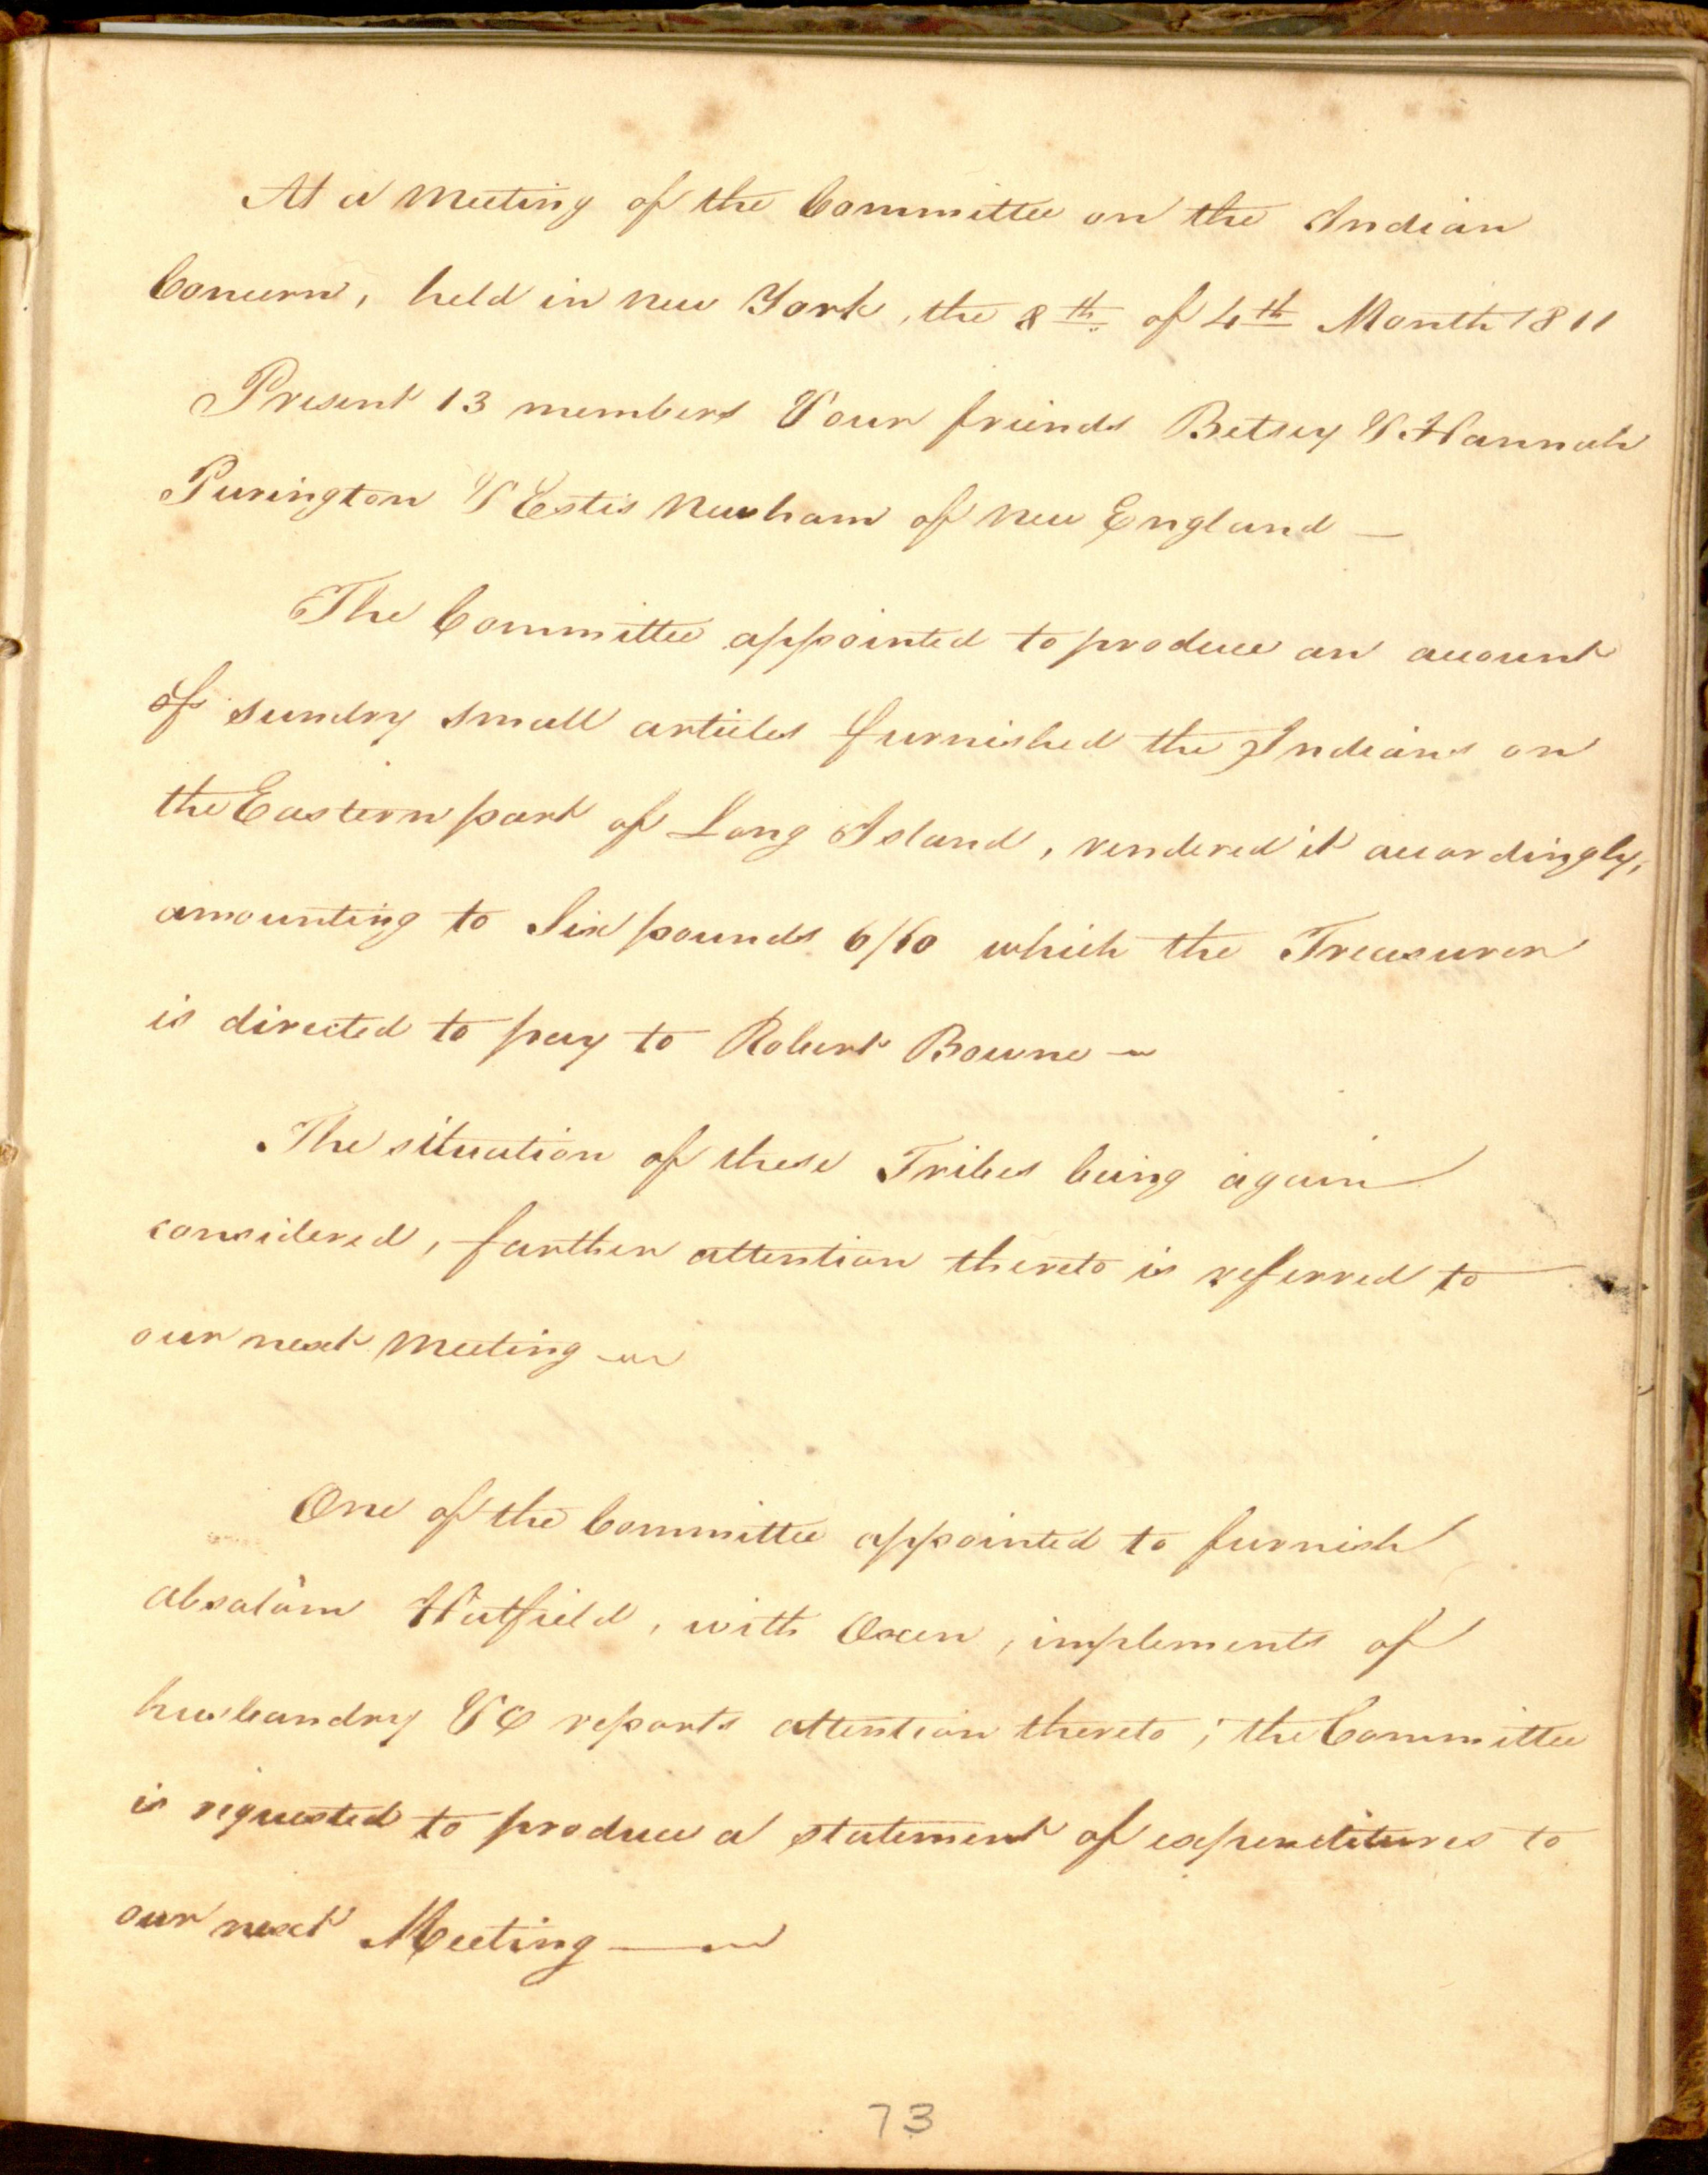 At a meeting of the Committee on the Indian
Concern, held in new York, the 8th of 4th Month 1811
Present 13 members & our friends Betsey & Hannah
Purington & Estis Newham of new England —
The Committee appointed to produce an account
of sundry small articles furnished the Indians on
the Eastern part of Long Island, rendered it accordingly,
amounting to Six pounds 6/10 which the Treasurer
is directed to pay to Robert Bowne —
The situation of these Tribes being again
considered, farther attention thereto is referred to
our next meeting —
One of the Committee appointed to furnish
absalom Hatfield, with Oxen, implements of
husbandry &c reports attention thereto; the Committee
is requested to produce a statement of expenditures to
our next Meeting —
73